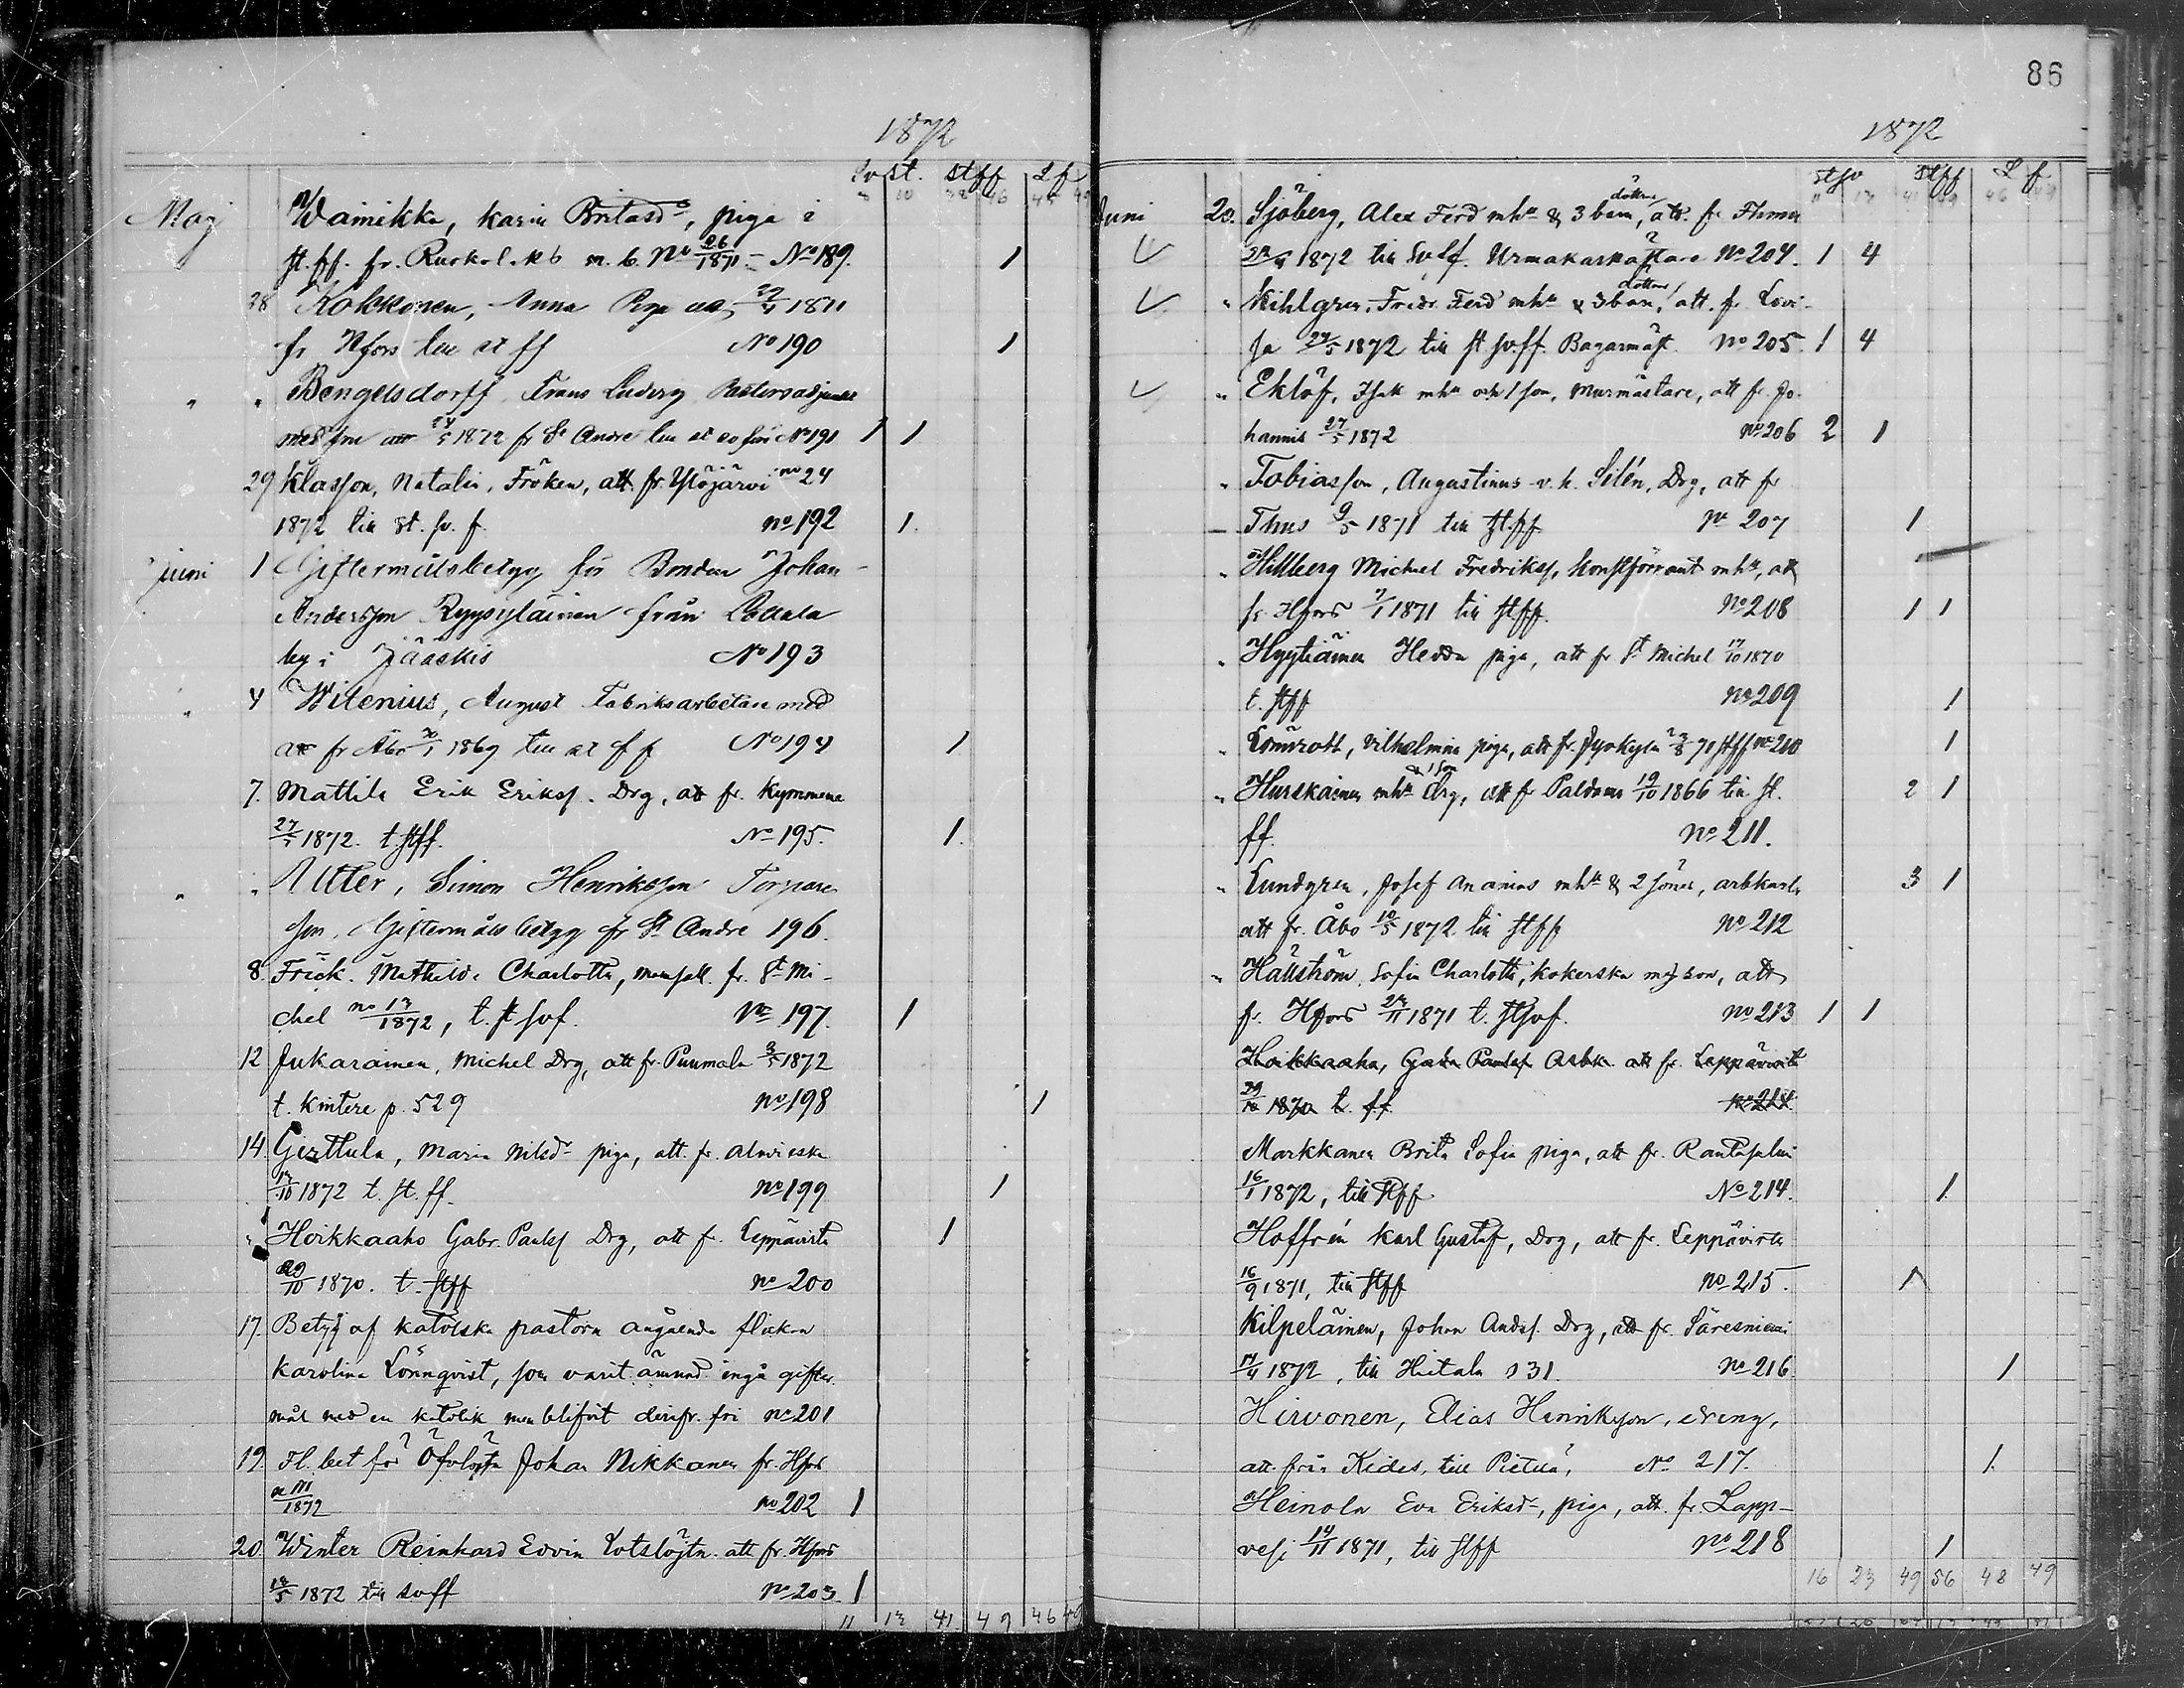 86
1872
sv st. stff L f
10 38 46 45
Maj Wainikka, Karin Britasdr, piga i
st. ff. fr. Ruokol. k b m. b. No 26/1871 No 189. 1
28 Kokkonen, Anna Piga att 1871
fr Hfors till st ff No 190 1
" " Bengelsdorff, Frans Ludvig Pastorsadjunkt
med fru att 1872 fr St Andre till st sv förs No 191 1 1
29 Klasson, Natalia, Fröken, att fr. Ylöjärvi no 24
1872 till St. sv. f. no 192 1.
Juni 1 Giftermålsbetyg för Bonden Johan
Andersson Ryypyläinen från
by i Jääskis No 193
" 4 Witenius, August Fabriksarbetare med
att fr Åbo 1869 till st f f No 194 1
7. Mattila Erik Eriks. Drg, att fr. Kymmene
27/5 1872. t. stff. No 195. 1.
" " Utter, Simon Henriksson Torpare
son, Giftermålsbetyg fr St Andre 196.
8. Frick. Mathilda Charlotta, mamsell. fr. St Mi-
chel no 17/1872, t. st svf. No 197. 1
12 Jukarainen, Michel Drg, att fr. Puumala 1872
t. Kintere p. 529 no 198 1
14. Gerttula, Maria Nilsdr piga, att. fr. Alavieska
1872 t. st. ff. no 199 1
" Hoikkaaho Gabr. Paulss Drg, att fr. Leppävirta 1
29/10 1870. t. stff no 200
17. Betyg af katolska pastorn angående flickan
Karolina Lönnqvist, som varit ämnad ingå gifter-
mål med en katolik men blifvit derifr. fri no 201
19. Fl. bet för Öfvlöjtn Johan Nikkanen fr. Hfors
1872 no 202 1
20. Winter Reinhard Edvin Lotslöjtn. att fr. Hfors
1872 till svff No 203. 1
11 13 41 49 46 49
1872
st sv stff L f
11 13 41 49 46 49
döttrar
Juni 20. Sjöberg, Alex Ferd mhu & 3 barn, att. fr.
1872 till sv. f. Urmakarmästare No 204. 1 4
döttrar
" Kihlgren, Fredr. Ferd mhu & 3 barn, att. fr. Lovi-
sa 1872 till st sv.ff. Bagarmäst. no 205. 1 4
" Eklöf, Isak mhu och 1 son, Murmästare, att fr. Jo-
hannis 27/5 1872 no 206 2 1
" Tobiasson, Augustinus v. h. Silén, Drg, att fr
Thus 9/5 1871 till st.ff. No 207 1
" Hillberg Michael Fredrikss, Konstförvant mhu, att
fr. Hfors 1871 till stff. No 208 1 1
" Hyytiäinen Hedda piga, att fr St Michel 1870
t. stff no 209 1
" Lönnroth, Vilhelmina piga, att fr. Pyhkylä 70 stff no 210 1
& 1 son
" Hurskainen mhu drg, att fr Paldamo 19/10 1866 till st. 2 1
ff. no 211.
" Lundgren, Josef Ananias mhu & 2 söner, arbkarl 3 1
att fr. Åbo 10/5 1872 till stff no 212
" Hällström, Sofia Charlotta, kokerska m 1 son, att
fr. Hfors 1871 t. st svf. no 213 1 1
Hoikkaaho, Gabr Paulss Arbk. att fr. Leppävirta
29/10 1870 t. ff. no 214
Markkanen Brita Sofia piga, att fr. Rantasalmi
16/1 1872, till stff No 214. 1.
Hoffrén Karl Gustaf, Drg, att fr. Leppävirta
16/9 1871, till stff no 215. 1
Kilpeläinen, Johan Andss. Drg, att fr. Säresniemi
1872, till Hietala 131. no 216 1
Hirvonen, Elias Henriksson, dreng,
att från Kides, till Pietilä, No 217. 1.
Heinola Eva Eriksdr, piga, att. fr. Lapp-
vesi 14/11 1871, till stff No 218 1
16 23 49 56 48 49